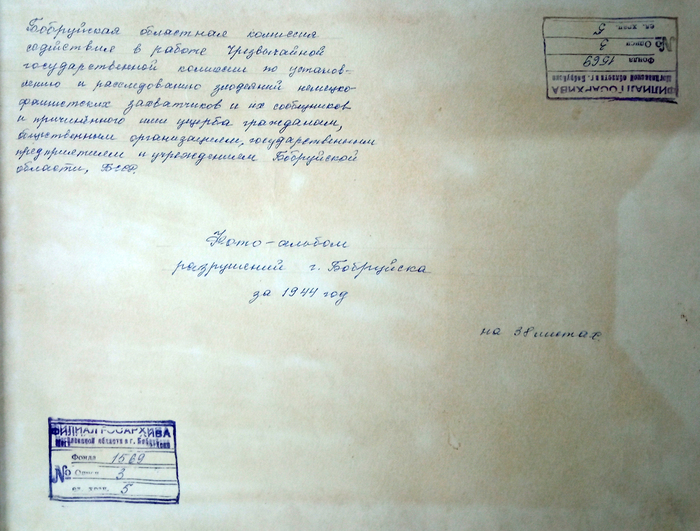 Бобруйская областная комиссия
содействия в работе Чрезвычайной
государственной комиссии по установ-
лению и расследованию злодеяний немецко-
фашистских захватчиков и их сообщников
и причинённого ими ущерба гражданам,
общественным организациям, государственным
предприятием и учреждением Бобруйской
области, БССР.
ФИЛИАЛ ГОСАРХИВА
Могилевской области в г. Бобруйске
Фонда 1569
№ Описи 3
ед. хран. 5
Фото-альбом
разрушений г. Бобруйска
за 1944 год
на 38 листах.
ФИЛИАЛ ГОСАРХИВА
Могилевской области в г. Бобруйске
Фонда 1569
№ Описи 3
ед. хран. 5